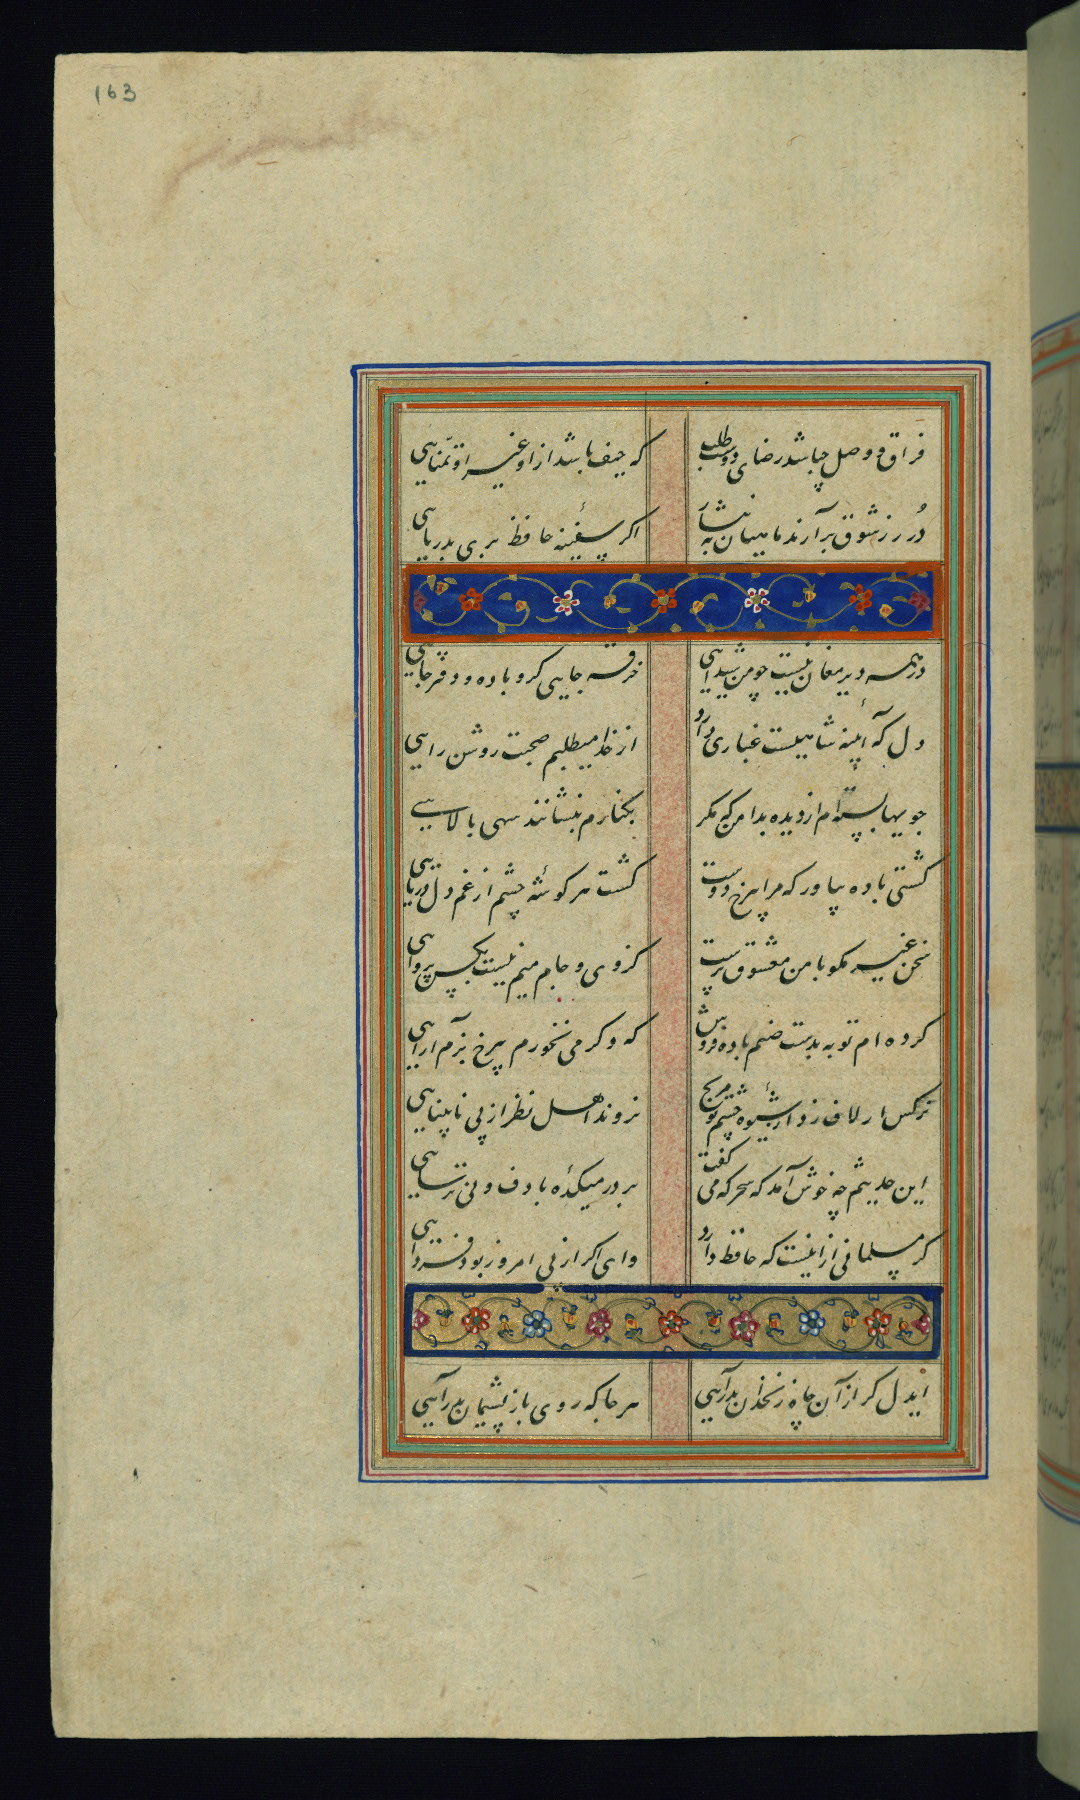 163
فراق و وصل چباشد رضای دوست طلب که حیف باشد از او غیر او تمنایی
دُرر ز شوق برآرند ماهیان به نثار اگر سفینهٔ حافظ بری بدریایی
در همه دیر مغان نیست چو من شیدایی خرقه جایی گرو باده و دفتر جایی
دل که آئینه شاهیست غباری دارد از خدا میطلبم صحبت روشن رایی
جویها بسته‌ام از دیده بدامن که مگر بکنارم بنشانند سهی بالایی
کشتی باده بیاور که مرا بیرخ دوست گشت هر گوشهٔ چشم از غم دل دریایی
سخن غیر مگو با من معشوق پرست کز وی و جام میم نیست بکس پروایی
کرده‌ام توبه بدست صنم باده فروش که دگر می نخورم بیرخ بزم آرایی
نرگس ار لاف زد از شیوهٔ چشم تو مرنج نروند اهل نظر از پی نابینایی
این حدیثم چه خوش آمد که سحرگه می گفت بر در میکدهٔ با دف و نی ترسایی
گر مسلمانی ازینست که حافظ دارد وای اگر از پی امروز بود فردایی
ایدل گر از آن چاه زنخدان بدرآیی هر جا که روی باز پشیمان بدرآیی